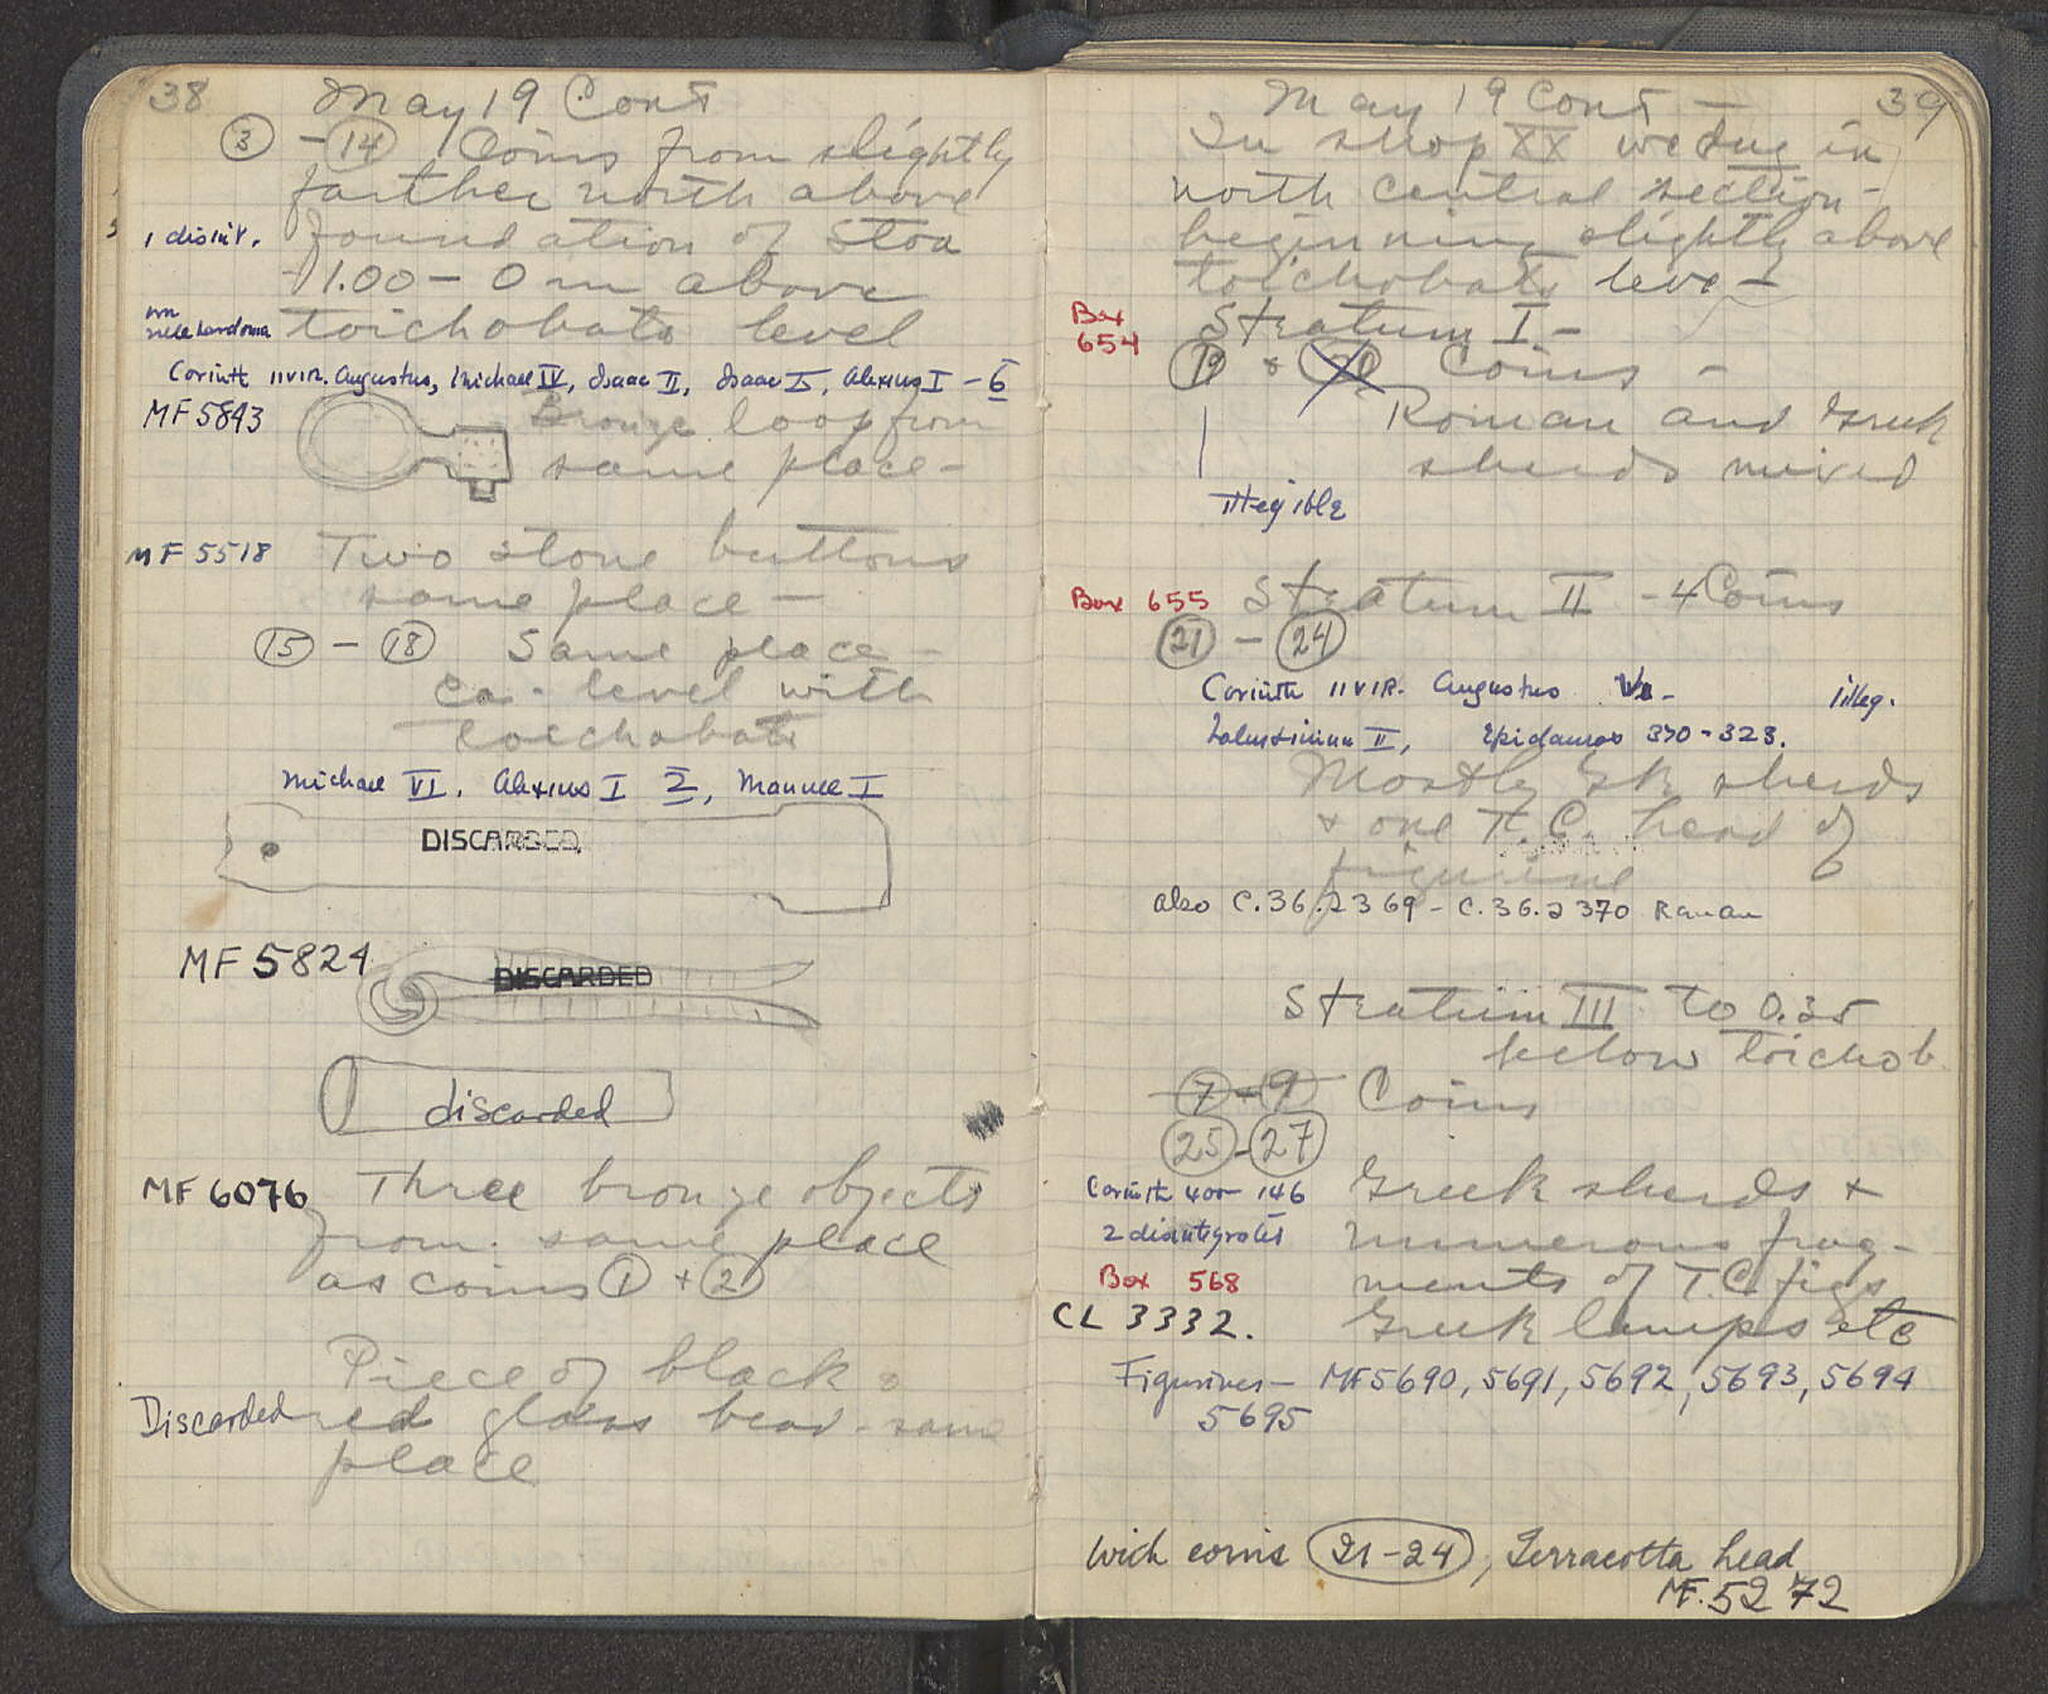 38 May 19 Cont
③ - ⑭ Coins from slightly
farther north above
1 disint. foundation of Stoa
1.00 - 0 m above
toichobate level
Corinth IIVIR. Augustus, Michael IV, Isaac II, Isaac I, Alexius I - 6
MF 5843 Bronze loop from
same place -
MF 5518 Two stone buttons
same place -
⑮ - ⑱ Same place -
ca. level with
toichobate
Michael VI, Alexius I 2, Manuel I
DISCARDED
MF 5824
DISCARDED
discarded
MF 6076 Three bronze objects
from same place
as coins ① + ②
Piece of black &
Discarded red glass bead - same
place
May 19 Cont - 39
In shop XX we dug in
north central section -
beginning slightly above
toichobate leve -
Box
654 Stratum I -
⑲ & ⑳ Coins -
Roman and Greek
sherds mixed
Illegible
Box 655 Stratum II - 4 Coins
㉑ - ㉔
Corinth IIVIR. Augustus illeg.
II, Epidauros 370-323.
Mostly Gk sherds
+ one T.C. head of
figurine
also C.36.2369 - C.36.2370 Roman
Stratum III to 0.35
below toichob
7 - 9 Coins
㉕ - ㉗
Corinth 400-146 Greek sherds +
2 disintegrated numerous frag-
Box 568 ments of T.C. figs
CL 3332. Greek lamps etc
Figurines - MF 5690, 5691, 5692, 5693, 5694
5695
With coins 21-24, Terracotta head
MF. 5272